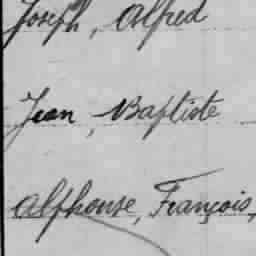 Joseph, Alfred
Jean, Baptiste
Alphonse, François,